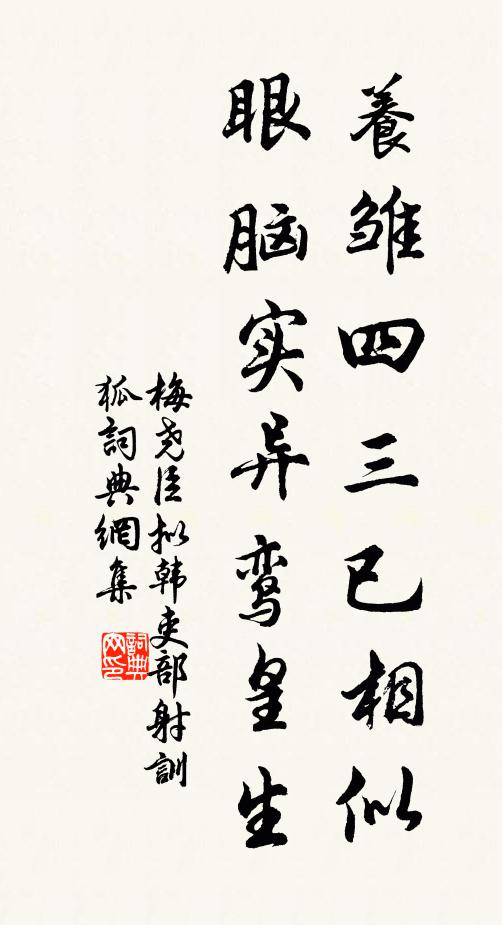 養雏四三已相似
眼脑实异鸾皇生
梅尧臣拟韩吏部射訓
狐詞典網集
詞典
网印